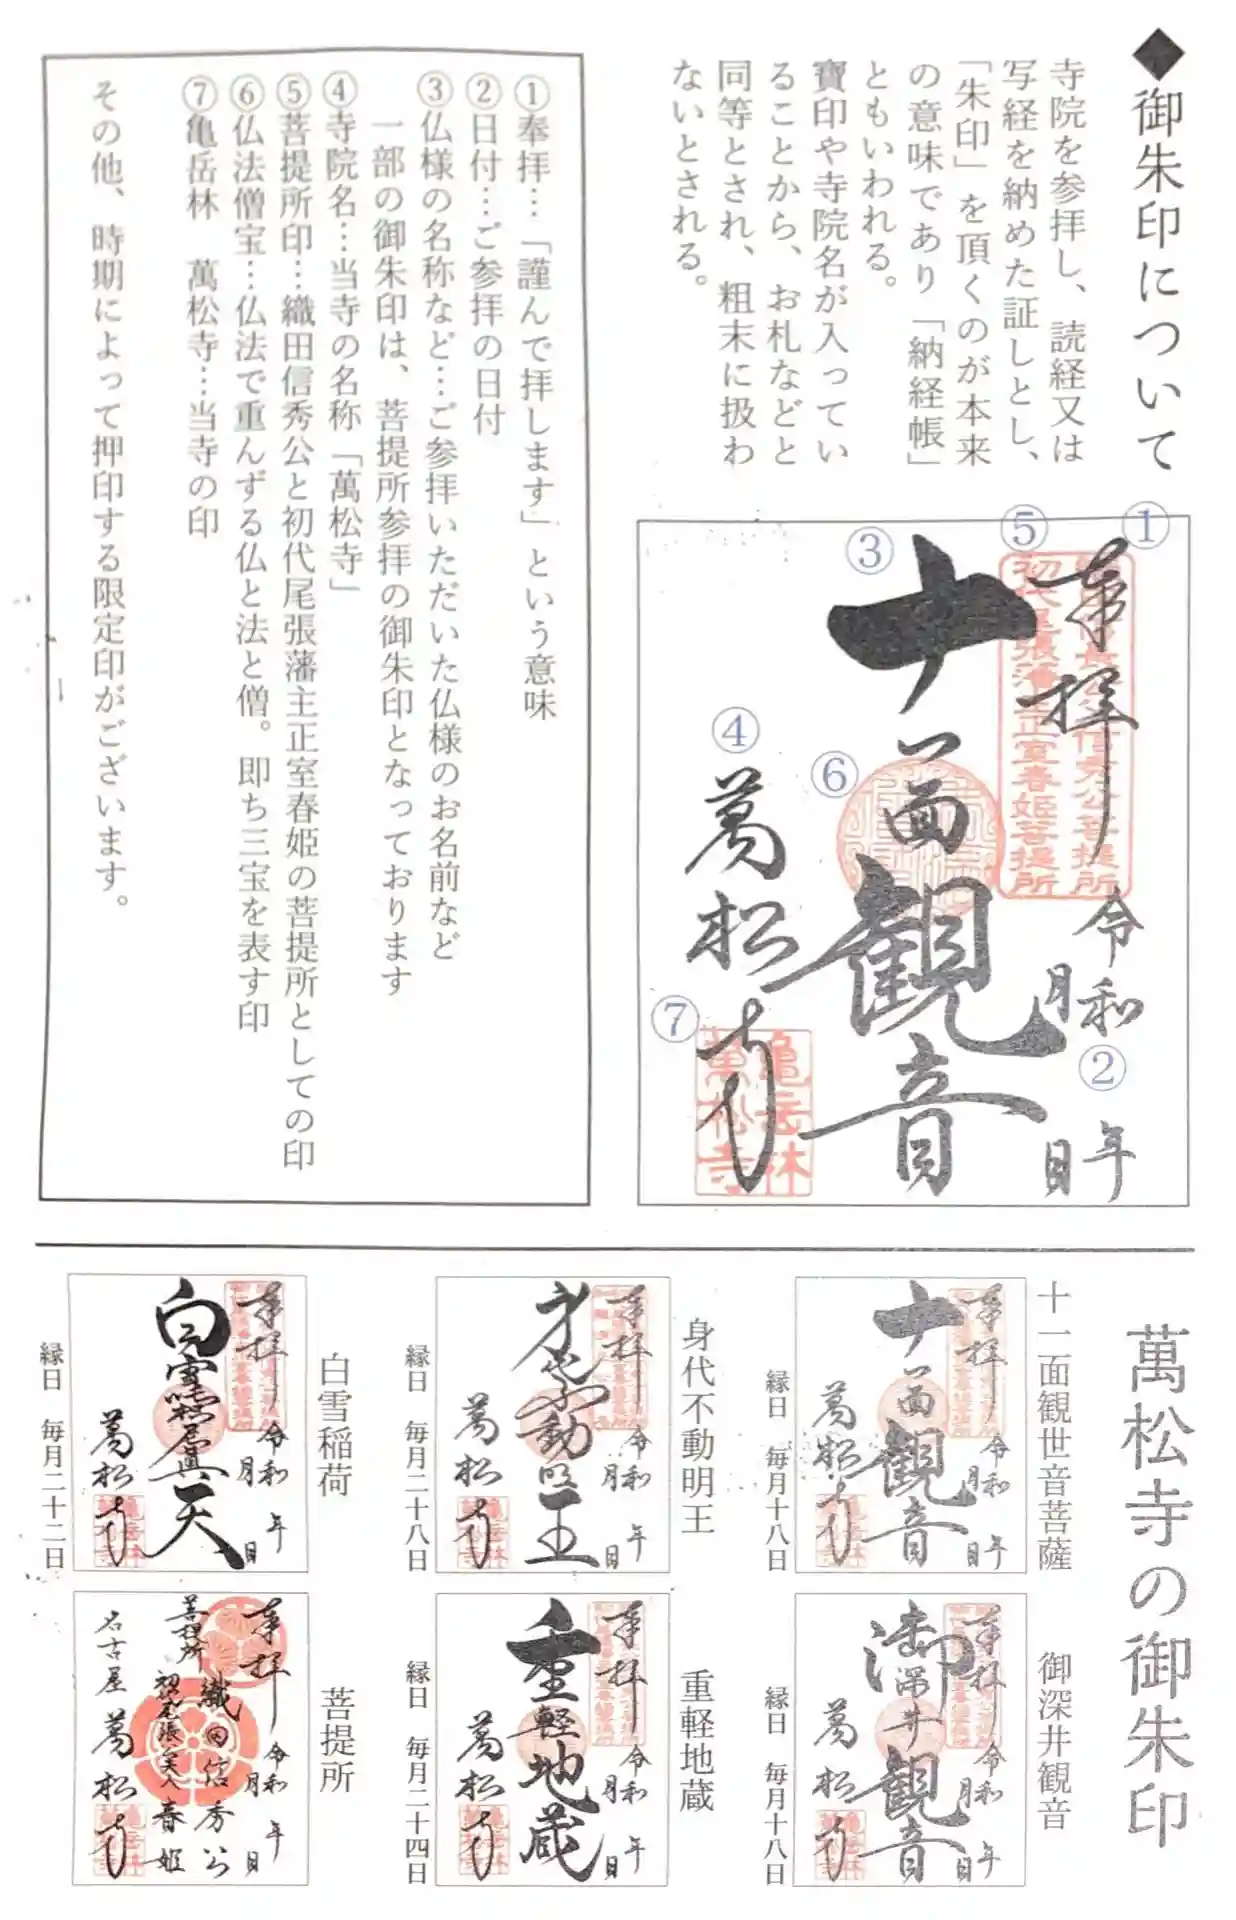 ◆御朱印について
寺院を参拝し、読経又は
写経を納めた証しとし、
「朱印」を頂くのが本来
の意味であり「納経帳」
ともいわれる。
寶印や寺院名が入ってい
ることから、お札などと
同等とされ、粗末に扱わ
ないとされる。
①
奉拝
⑤
初代尾張藩主正室春姫菩提所
令和 年
②
月 日
③
十一面観音
⑥
④
萬松寺
⑦
亀岳林
萬松寺
①奉拝…「謹んで拝します」という意味
②日付…ご参拝の日付
③仏様の名称など…ご参拝いただいた仏様のお名前など
一部の御朱印は、菩提所参拝の御朱印となっております
④寺院名…当寺の名称「萬松寺」
⑤菩提所印…織田信秀公と初代尾張藩主正室春姫の菩提所としての印
⑥仏法僧宝…仏法で重んずる仏と法と僧。即ち三宝を表す印
⑦亀岳林 萬松寺…当寺の印
その他、時期によって押印する限定印がございます。
萬松寺の御朱印
十一面観世音菩薩
奉拝
令和 年
月 日
十一面観音
萬松寺
縁日 毎月十八日
身代不動明王
奉拝
令和 年
月 日
身代不動明王
萬松寺
縁日 毎月二十八日
白雪稲荷
奉拝
令和 年
月 日
萬松寺
縁日 毎月二十二日
御深井観音
奉拝
令和 年
月 日
御深井観音
萬松寺
縁日 毎月十八日
重軽地蔵
奉拝
令和 年
月 日
重軽地蔵
萬松寺
縁日 毎月二十四日
菩提所
奉拝
令和 年
月 日
菩提所
織田信秀公
春姫
名古屋 萬松寺